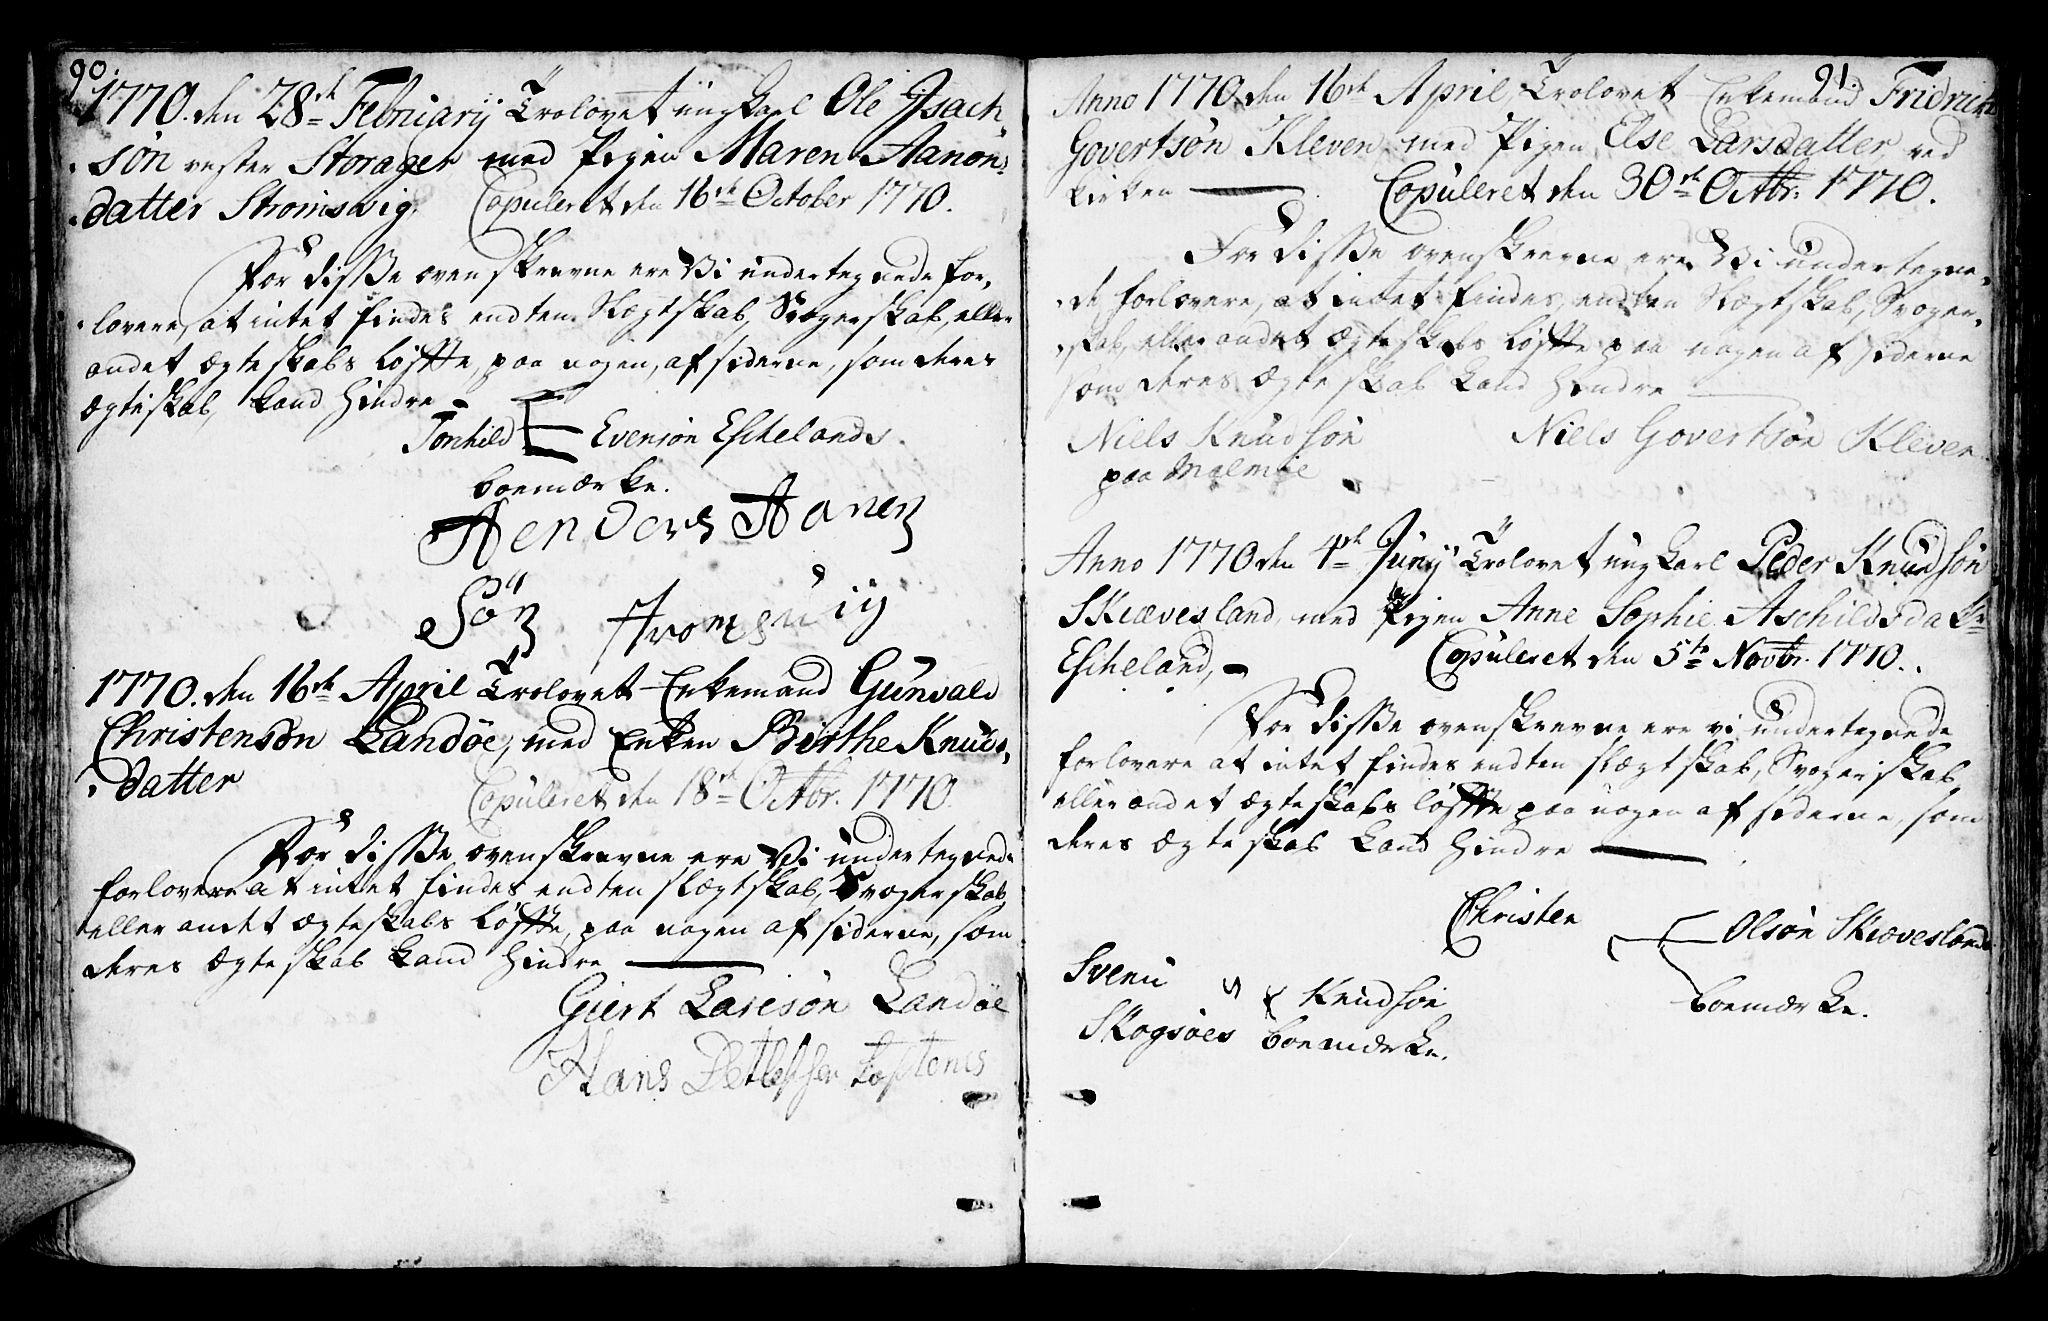 90.
1770. den 28de Februarij Trolovet ungkarl Ole Jsach
søn vester Storager med Pigen Maren Aanon-
datter Stromswig. Copuleret den 16de October 1770.
For disse ovenskrevne ere Vi undertegnede for-
lovere, at intet findes endten Slægtskab, Svogerskab, eller
andet ægteskabs løffte, paa nogen, af siderne, som deres
ægteskab, kand hindre
Tonhild Evensøn Escheland
boemærke.
Aenders Aanen
Søn Stromsuig
1770. den 16de April Trolovet Enkemand Gunvald
Christensøn Landøe, med Enken Birthe Knuds-
datter
Copuleret den 18de Octbr. 1770.
For disse ovenskrevne ere Vi undertegnede
forlovere at intet findes endten slægtskab, Svogerskab
eller andet ægteskabs løffte, paa nogen af siderne, som
deres ægteskab kand hindre
Giert Larsøn Landøe
Hans Detlefsen
91.
Anno 1770 den 16de April, Trolovet Enkemand Fridrich
Govertsøn Kleven, med Pigen Else Larsdatter, ved
kirken Copuleret den 30te Octbr. 1770.
For disse ovenskrevne ere Vi undertegne-
de forlovere, at intet findes, endten Slægtskab, Svoger-
skab, eller andet ægteskabs løffte paa nogen af siderne
som deres ægteskab kand hindre
Niels Knudsøn Niels Govertsøn Kleven.
paa Malmøe
Anno 1770 den 4de Junij Trolovet ungkarl Peder Knudsøn
Skiævesland, med Pigen Anne Sophie Aschildsdatr
Escheland, Copuleret den 5te Novbr. 1770.
For disse ovenskrevne ere vi undertegnede
forlovere at intet findes endten slægtskab, Svogerskab
eller andet ægteskabs løffte paa nogen af siderne, som
deres ægteskab kand hindre
Christen Olsøn Skiævesland
boemærke.
Svenu Knudsøn
Skogsøes boemærke.